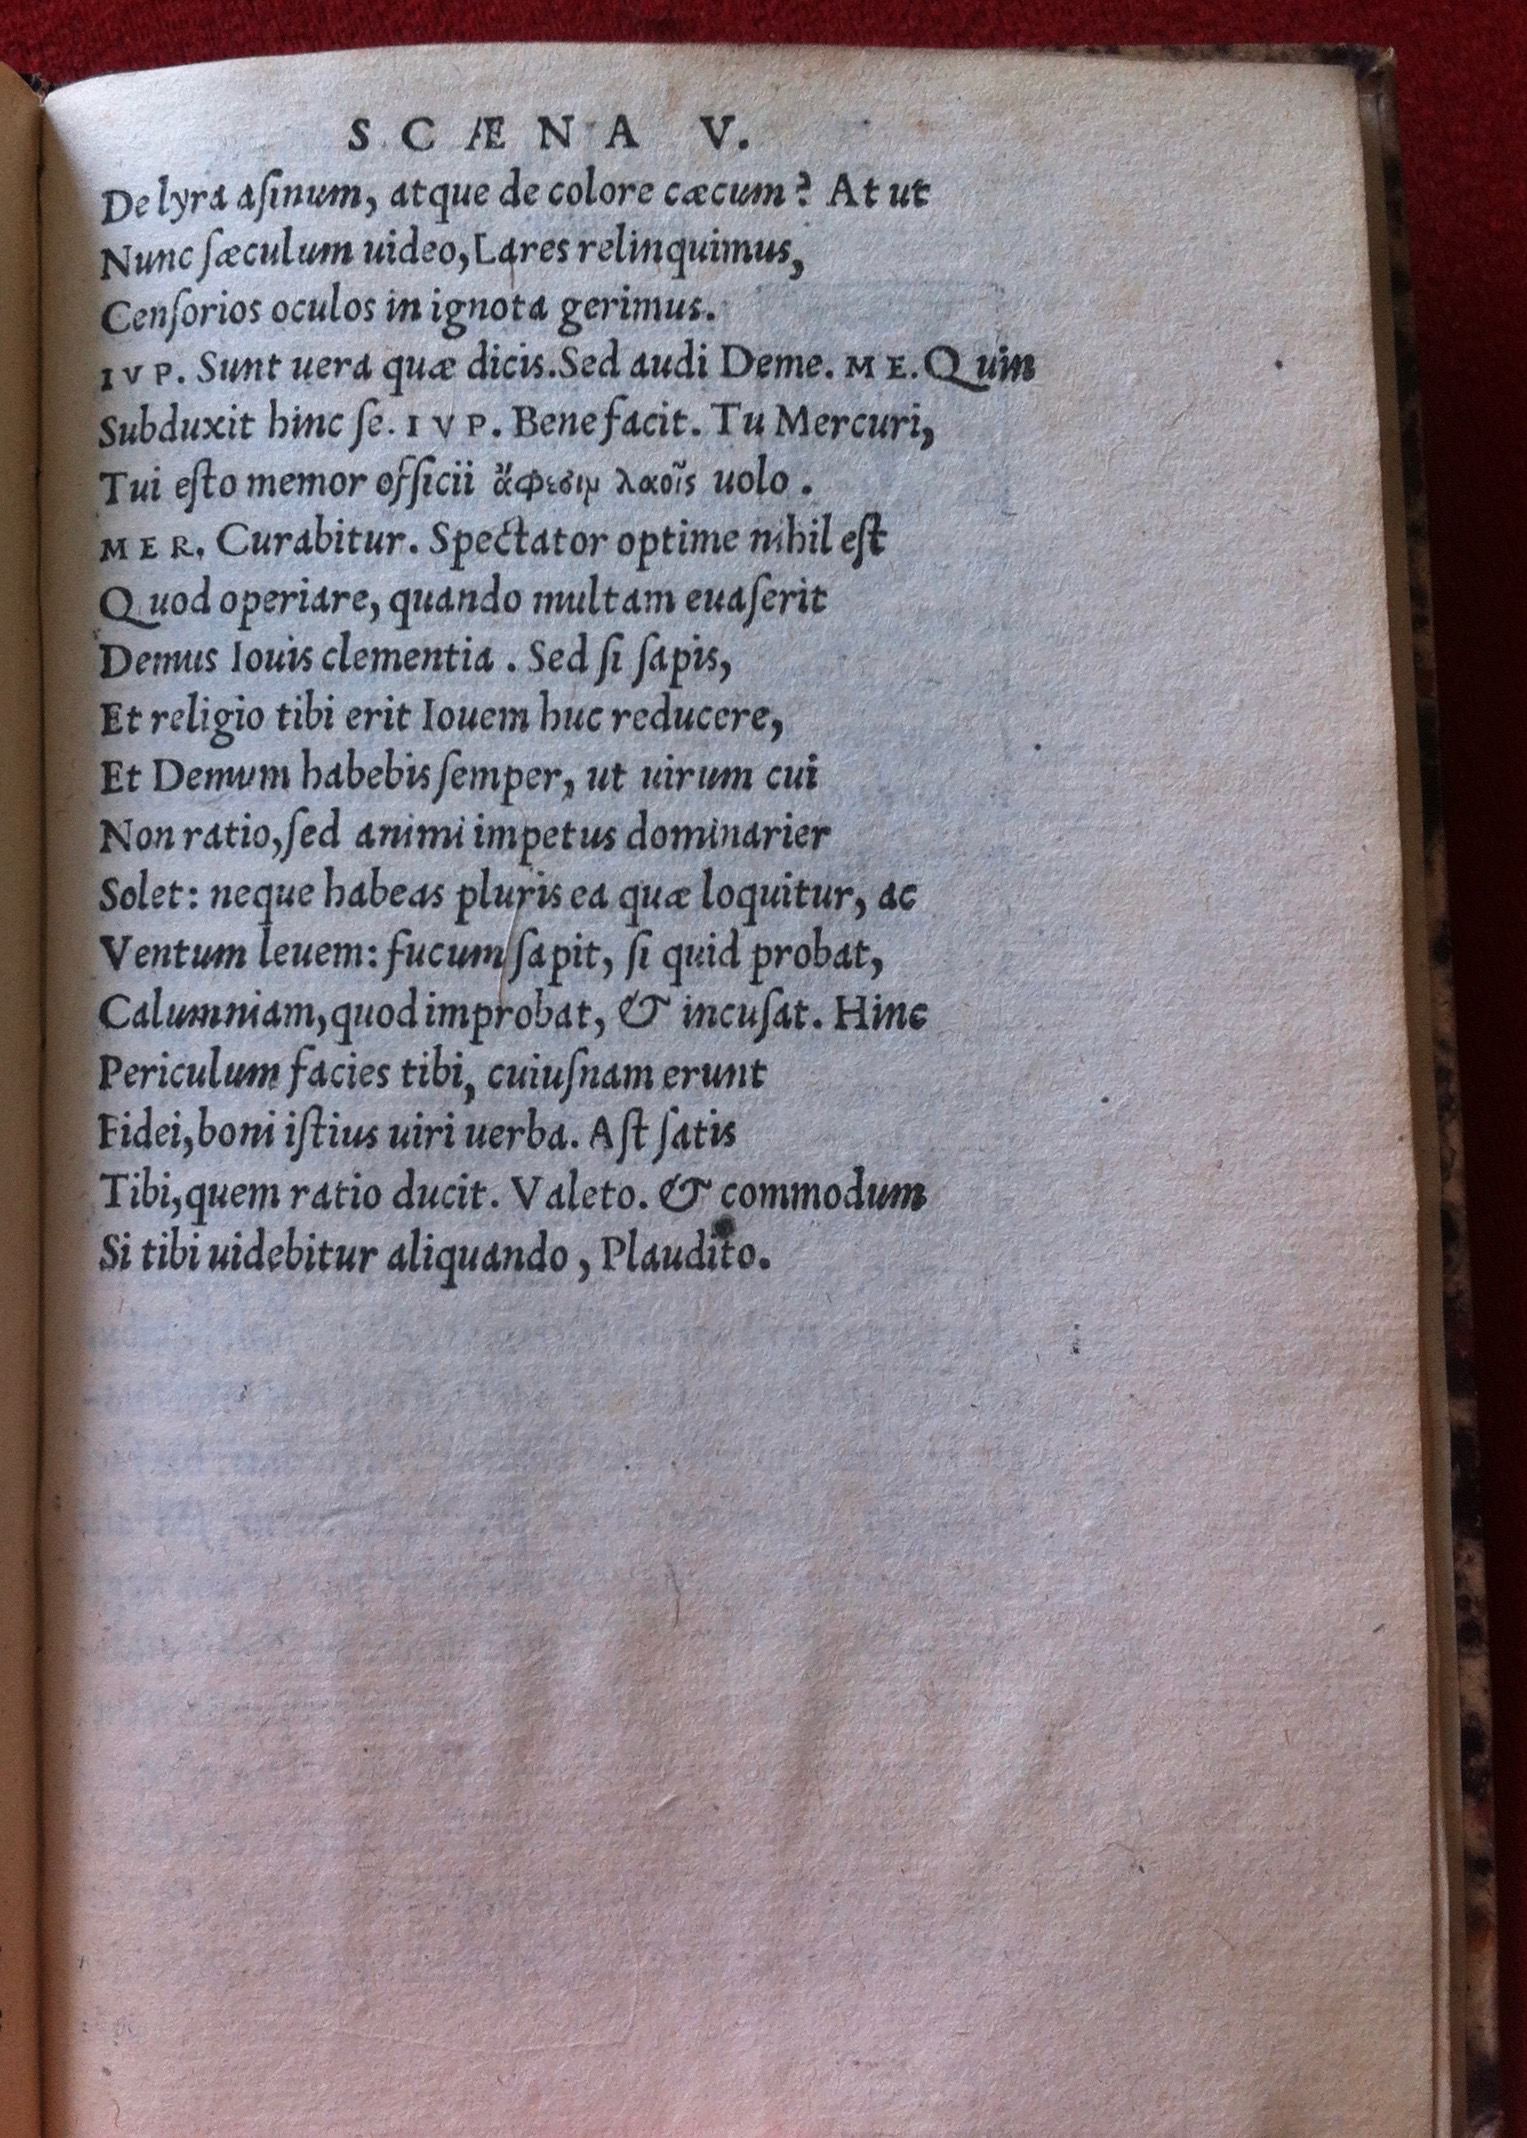 SCÆNA V.
De lyra aſinum, atque de colore cæcum? At ut
Nunc ſæculum uideo, Lares relinquimus,
Cenſorios oculos in ignota gerimus.
IVP. Sunt uera quæ dicis. Sed audi Deme. ME. Quin
Subduxit hinc ſe. IVP. Bene facit. Tu Mercuri,
Tui eſto memor officii ἄφεσιμ λαοῖς uolo.
MER. Curabitur. Spectator optime nihil eſt
Quod operiare, quando multam euaſerit
Demus Iouis clementia. Sed ſi ſapis,
Et religio tibi erit Iouem huc reducere,
Et Demum habebis ſemper, ut uirum cui
Non ratio, ſed animi impetus dominarier
Solet: neque habeas pluris ea quæ loquitur, ac
Ventum leuem: fucum ſapit, ſi quid probat,
Calumniam, quod improbat, & incuſat. Hinc
Periculum facies tibi, cuiuſnam erunt
Fidei, boni iſtius uiri uerba. Aſt ſatis
Tibi, quem ratio ducit. Valeto. & commodum
Si tibi uidebitur aliquando, Plaudito.